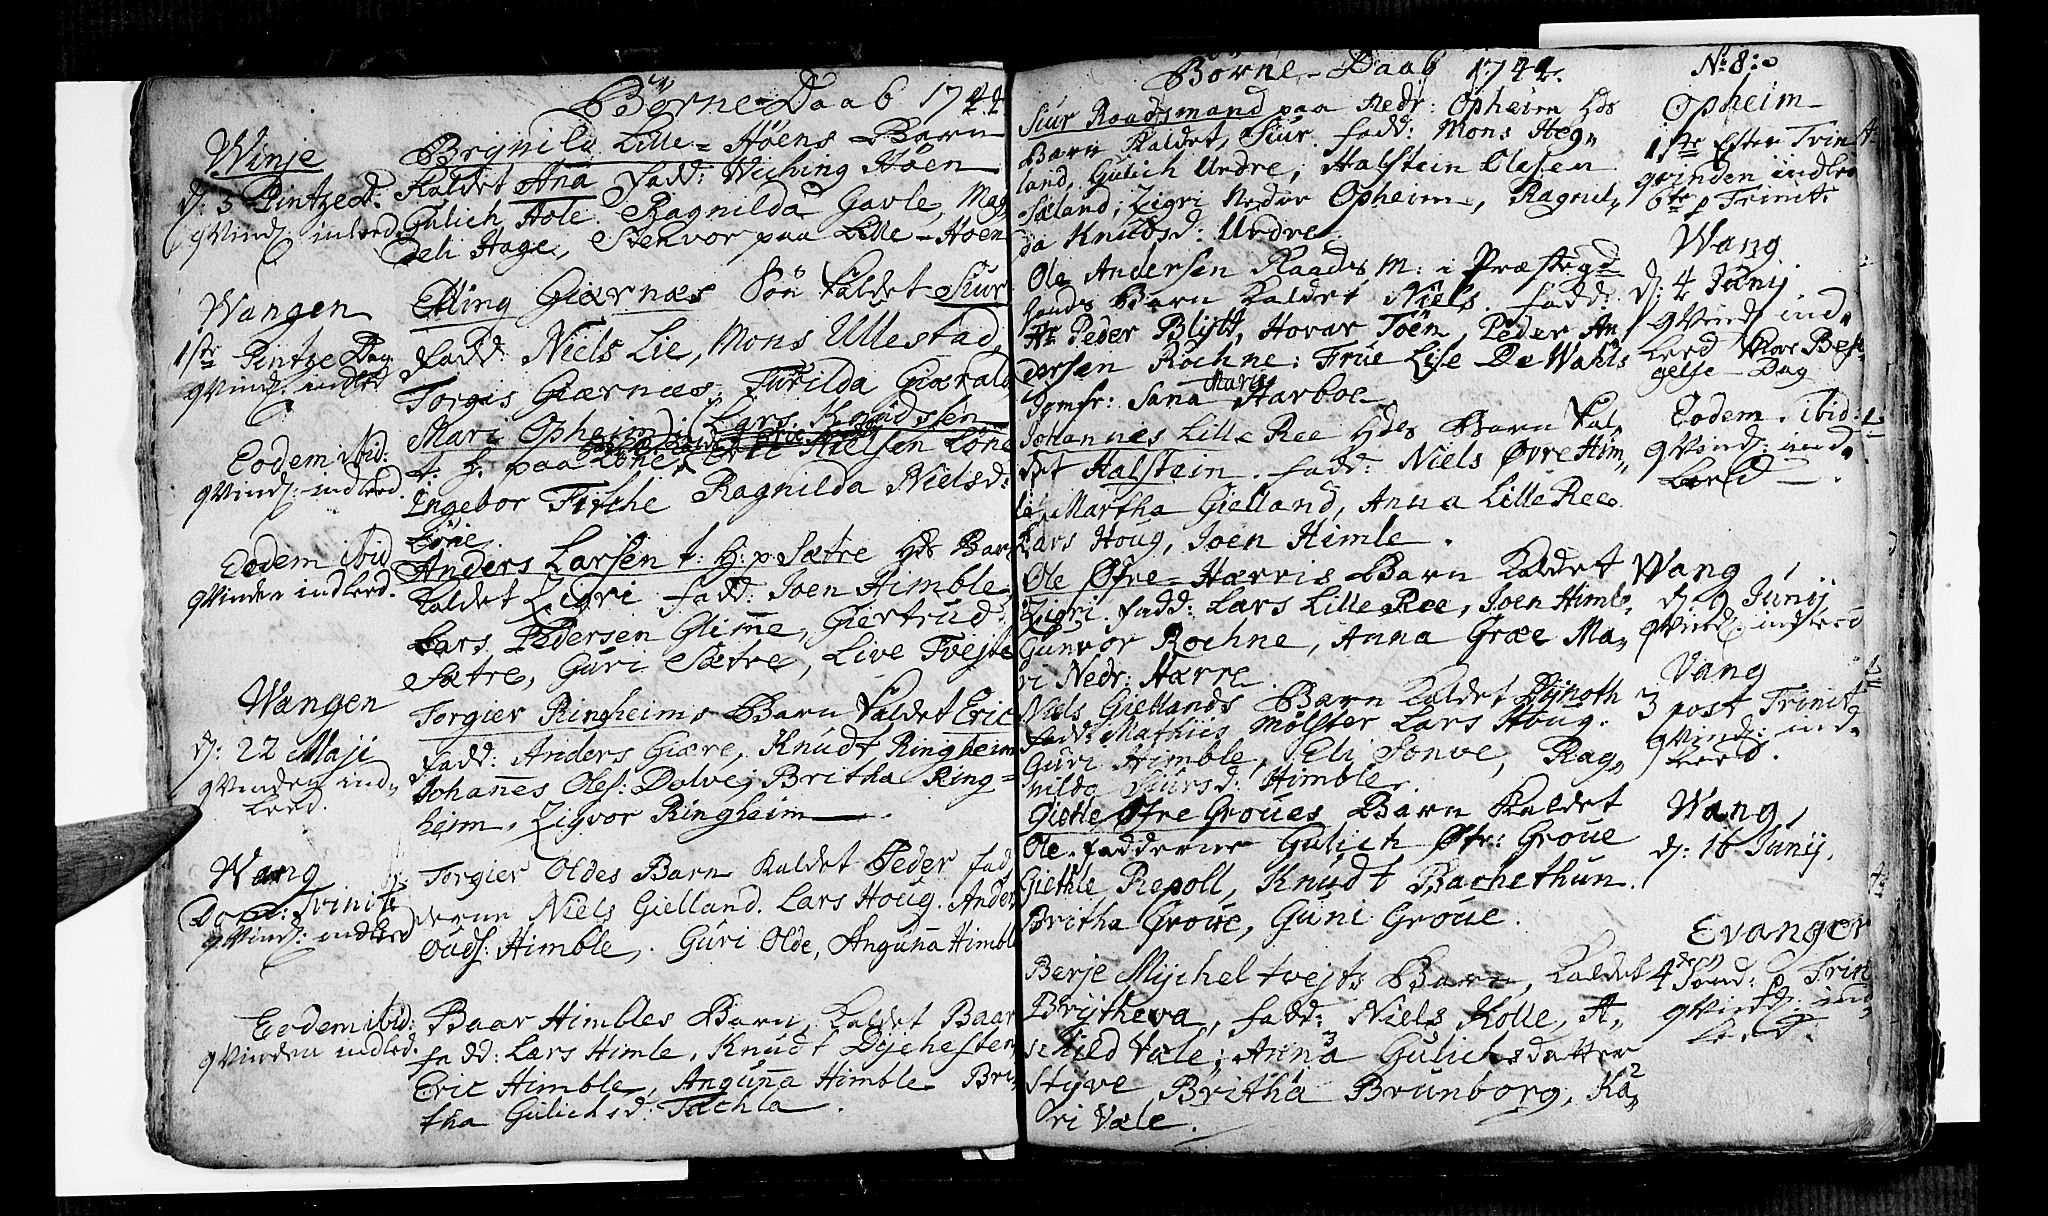 Børne-Daab 1744
Winje
d: 3 Pintze d:
qvind: indleed.
Brynild Lille-Høens Barn
Kaldet Ana fadd: Wiching Höen
Gulich Hole. Ragnilda Gavle, Mag,
deli Hage, Stenvor paa Lille-Hoen
Wangen
1ste Pintze Dag
qvind: indleed
Elling Giærnæs Sön Kaldet Siur
fadd: Niels Lie, Mons Ullestad,
Torgis Giærnæs, Turilda Giærald
Mari Opheim
Eodem ibid:
qvind: indleed.
Lars Knudssen
t. h. paa Löne, Nielsen Löne
Ingebor Ragnilda Nielsd:
Löne.
Eodem ibid
qvinden indleed.
Anders Larsen t: h: p: Sætre hds Barn
Kaldet Zigri fadd: Joen Himble,
Lars Pedersen Glime, Giertrud
Sætre, Guri Sætre, Live Tvejte
Wangen
d: 22 Maji
qvinden ind-
leed.
Torgier Ringheims Barn Kaldet Eric
fadd: Anders Giære, Knudt Ringheim
Johanes Oles: Dolve, Britha Ring=
heim, Zigvor Ringheim
Wang
Dom: Trinit:
qvind: indleed
Torgier Oldes Barn Kaldet Peder fad,
derne Niels Gielland. Lars Houg. Ander
Ouds: Himble. Guri Olde, Anguna Himble
Eodem ibid:
qvinden indled.
Baar Himbles Barn, Kaldet Baar
fadd: Lars Himle, Knudt Dychesten
Eric Himble, Anguna Himble Bri,
tha Gulichsd: Tachla.
Børne-Daab 1744.
No 8:
Siur Raadsmand paa Nedr: Opheim hds
Barn Kaldet, Siur. fadd: Mons Heg,
land, Gulich Undre, Halstein Olesen
Sæland, Zigri Nedre Opheim, Ragnil,
da Knudsd: Undre.
Opheim
1ste Efter Trinit:
qvinden indleed
6te p Trinit:
Ole Andersen Raads M: i Præstegd
hands Barn Kaldet Niels. fadd:
Hr Peder Blydt, Hovar Toën, Peder An
dersen Rochne: Frue Lise De Wahls
Jomfr: Sana Maria Harboe.
Wang
d: 4 Junij
qvind: ind,
leed Mar Besø
gelse-Dag
Johannes Lille Ree hds Barn Kal,
det Halstain. fadd: Niels Øvre Him,
le, Martha Gielland, Anna Lille Ree
Lars Houg, Joen Himle.
Eodem. ibid:
qvind: ind,
leed
Ole Øfre-Hærris Barn Kaldet
Zigri. fadd: Lars Lille Ree, Joen Himle,
Gunvor Rochne, Anna Græe Ma,
ri Nedr: Hærre.
Wang
d. 9 Junij
qvind: indleed
Niels Giellands Barn Kaldet Dynoth
fadd: Mathiis Mølster Lars Houg.
Guri Himble, Eli Sonve, Rag,
nilda Siursd: Himble.
Vang
3 post Trinit
qvind: ind,
leed.
Giethle Øfre Groues Barn Kaldet
Ole. fadderne Gulich Øfr: Groue
Giethle Repoll, Knudt Bachethun.
Britha Groue, Guni Groue.
Wang,
d: 16 Junij.
Berje Mycheltvejts Barn, Kaldet
Brytheva, fadd: Niels Kolle, A,
schild Væle, Anna Gulichsdatter
Styve, Britha Brunborg, Ka,
ri Væle.
Evanger
4den Sönd: p Trin
qvind: ind,
leed.